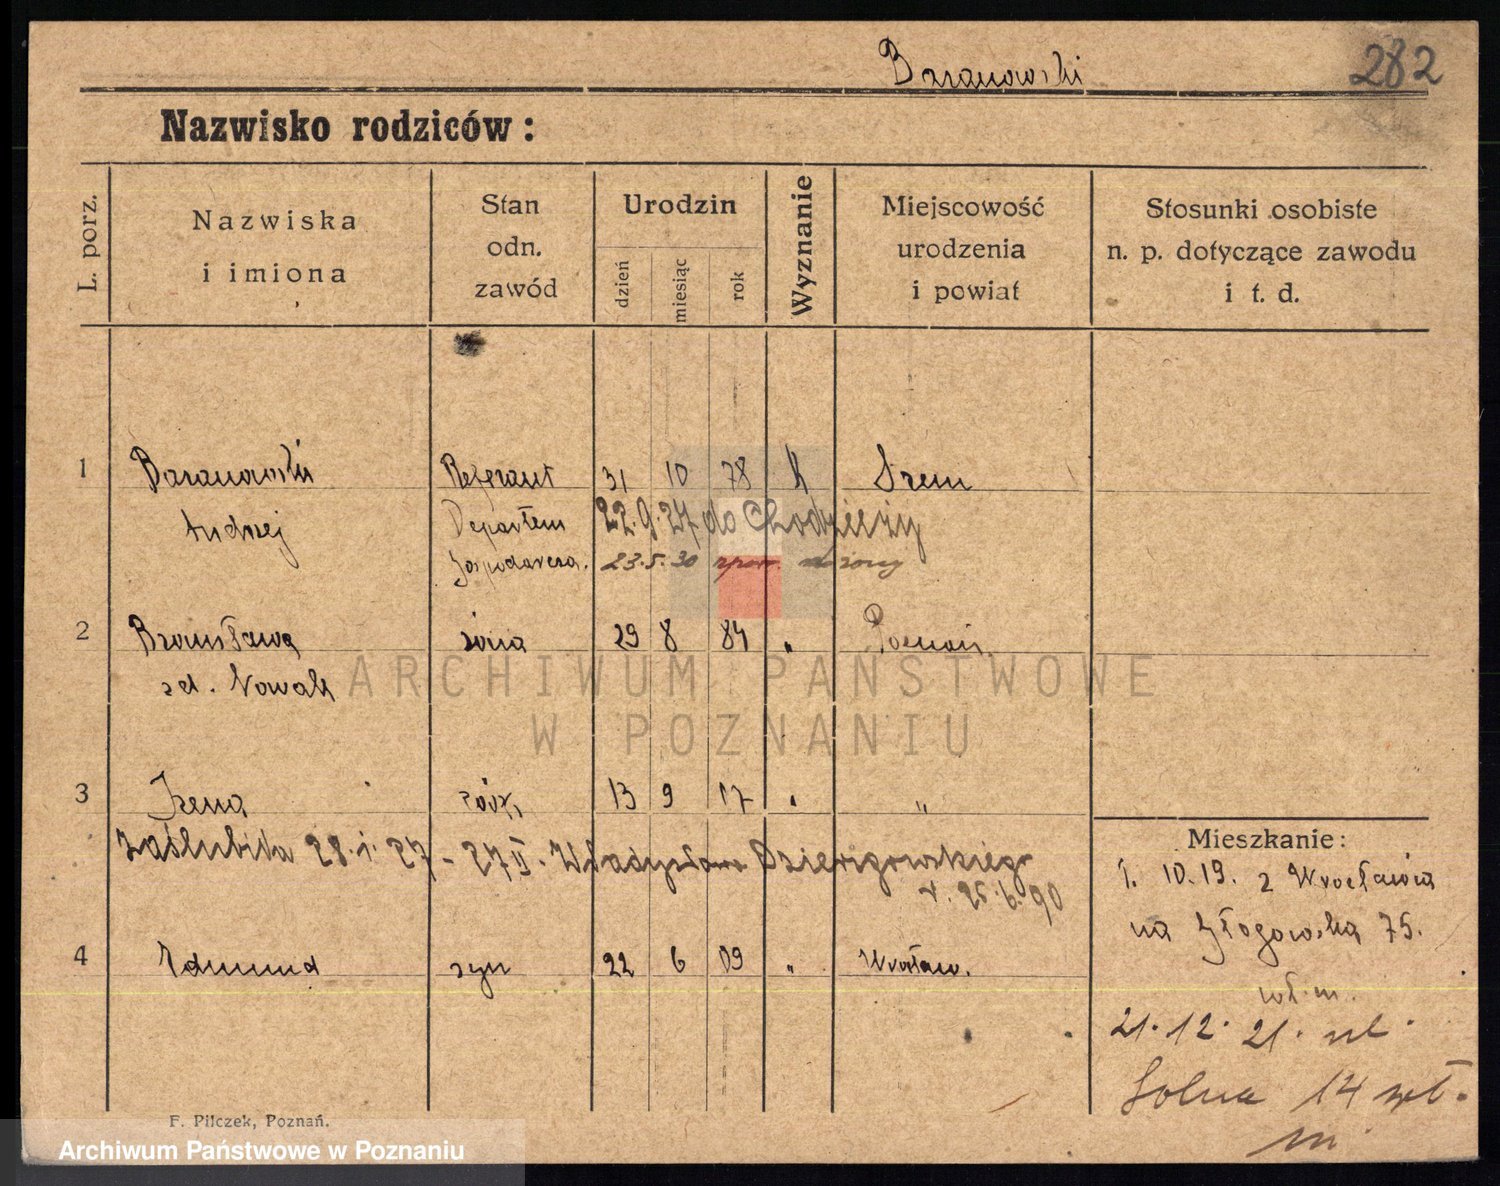 Baranowski
282
Nazwisko rodziców :
L. porz.
Nazwiska
i imiona
Stan
odn.
zawód
Urodzin
dzień
miesiąc
rok
Wyznanie
Miejscowość
urodzenia
i powiat
Stosunki osobiste
n. p. dotyczące zawodu
i t. d.
1 Baranowski Referent 31 10 78 K Srem
Andrzej Departem 22.9.27 do Chodzieży
Gospodarcza. 23.5.30
2 Bronisława żona 29 8 84 " Poznań
zd. Nowak
ARCHIWUM PAŃSTWOWE
W POZNANIU
3 Irena córka 13 9 17 " "
Zaślubiła 28.1.27 - 27 II. Władysława Dzierzgowskiego
25.6.90
4 Edmund syn 22 6 09 " Wrocław.
Mieszkanie:
1. 10.19. z Wrocławia
na Głogowską 75.
wł. m.
21.12.21. ul.
Solna 14
m.
F. Pilczek, Poznań.
Archiwum Państwowe w Poznaniu